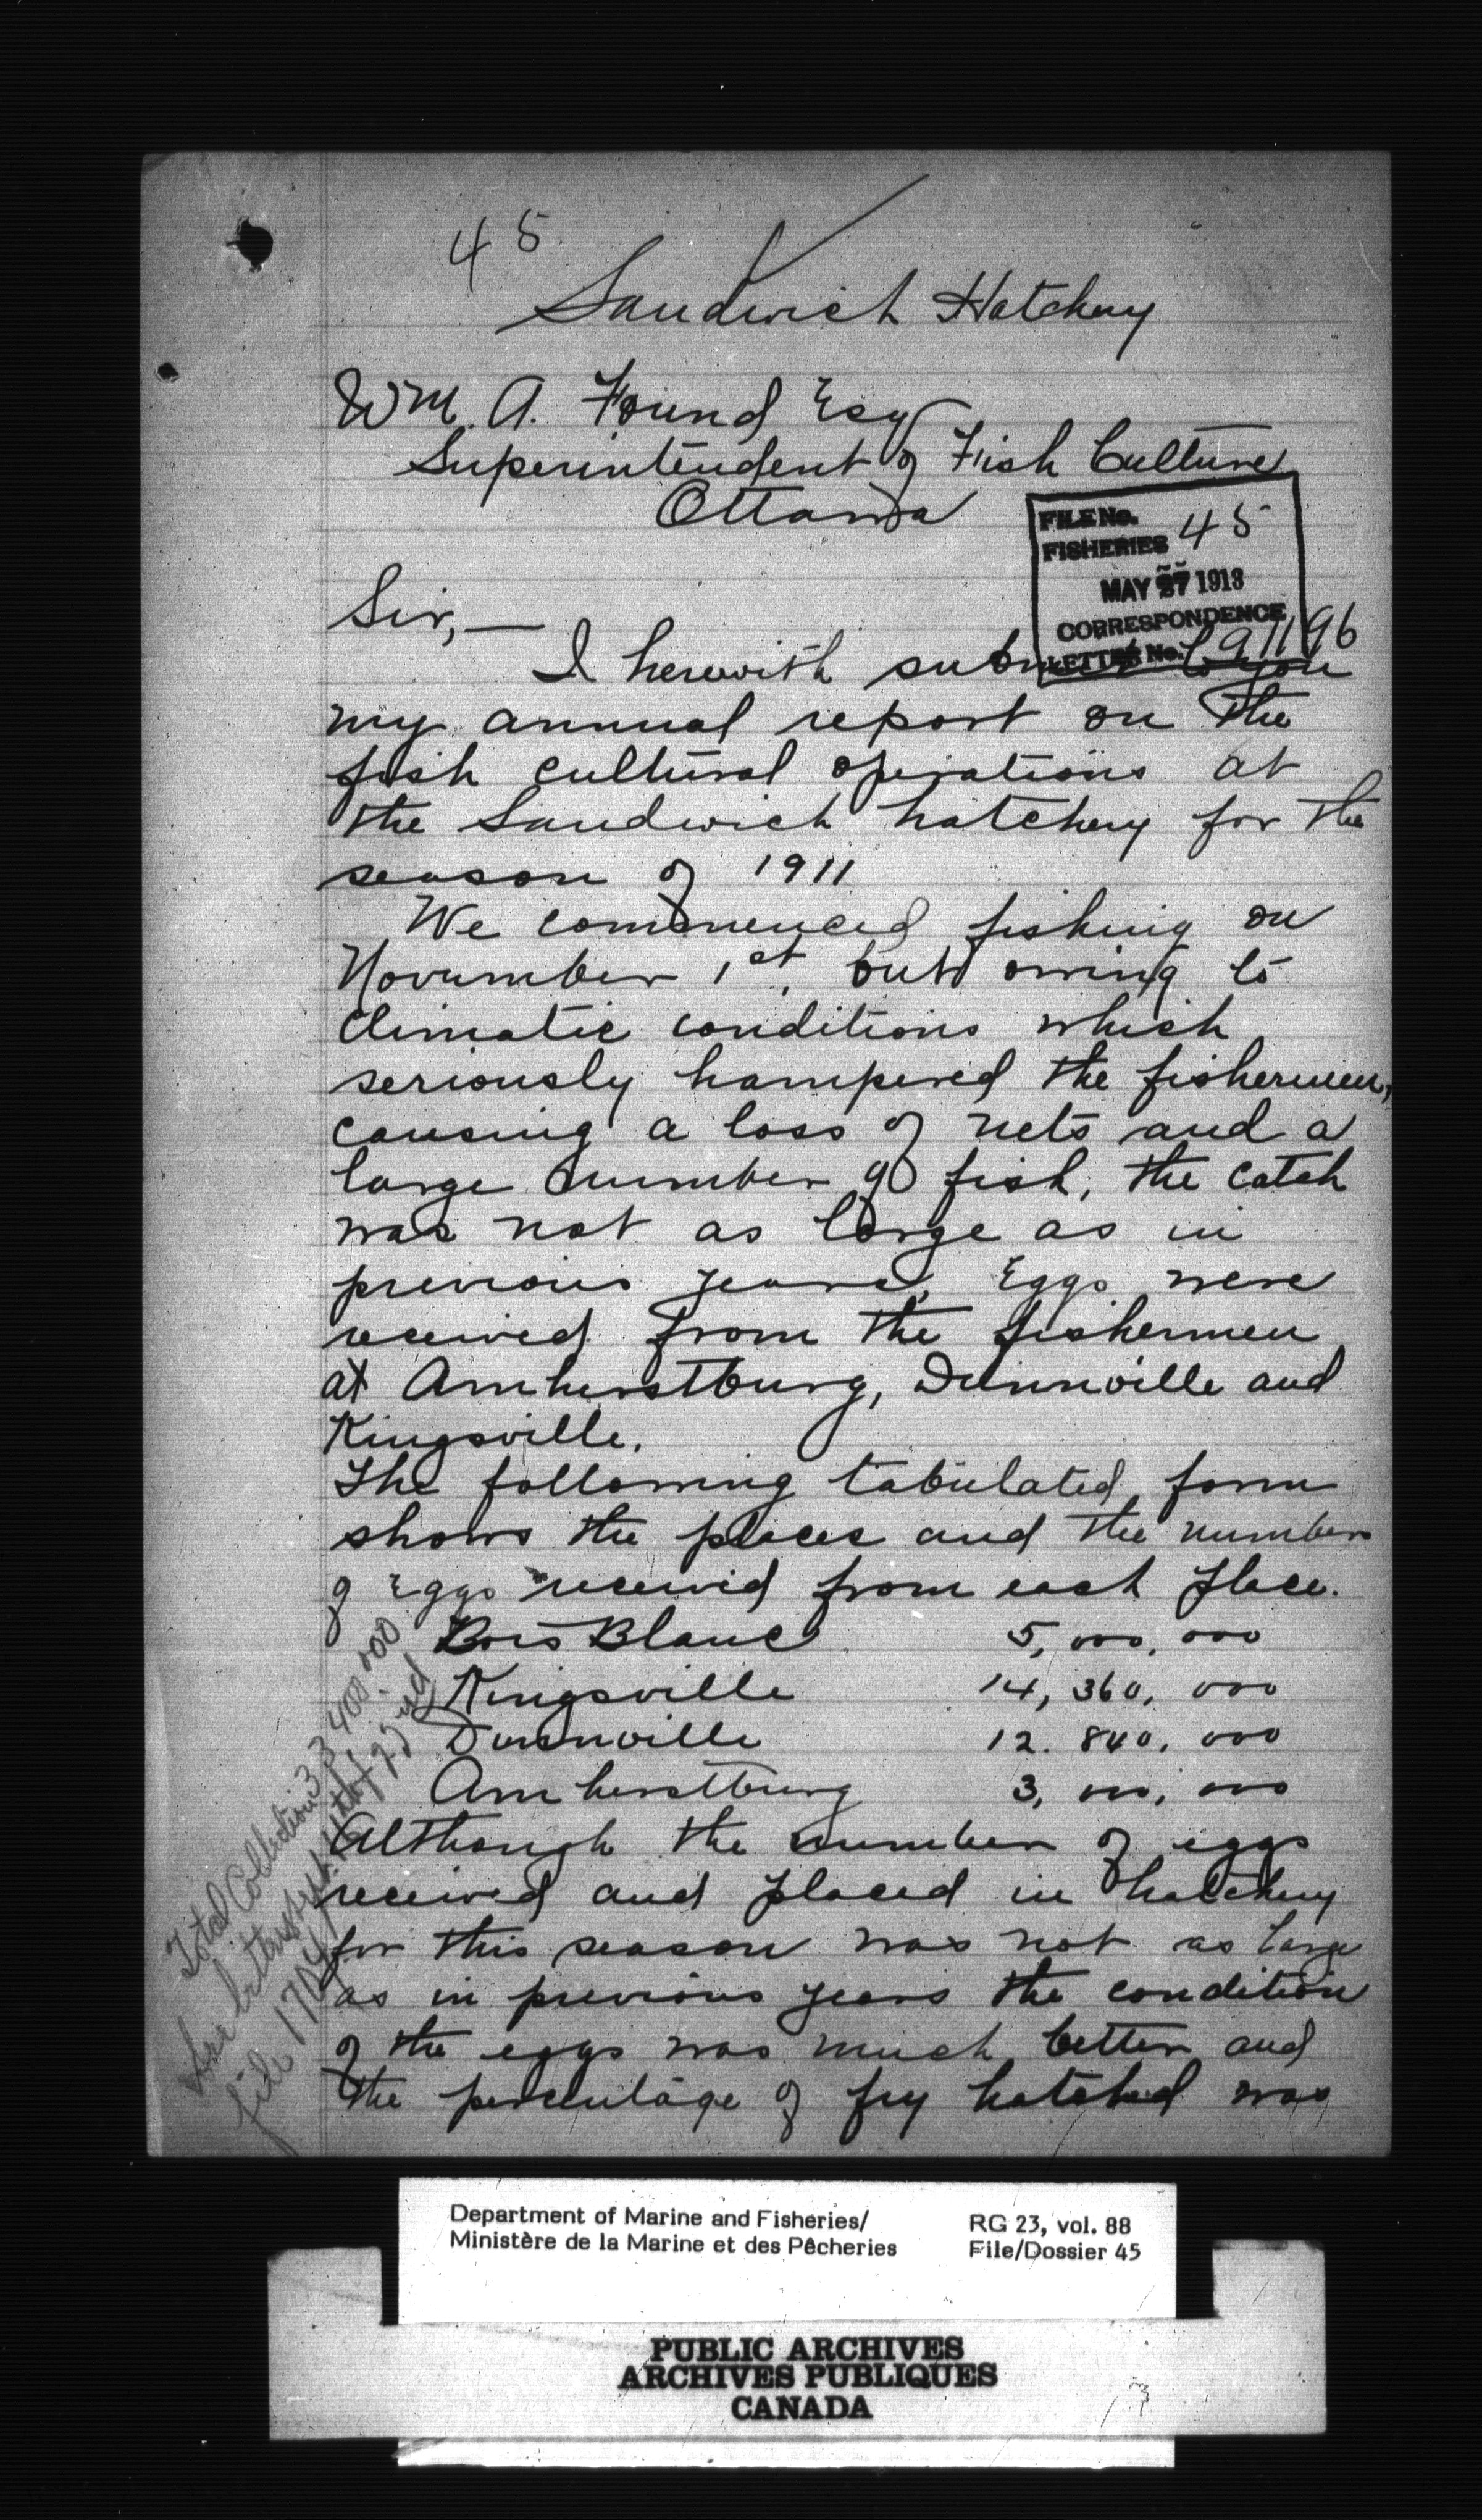 45
Sandwich Hatchery
Wm. A. Found Esq
Superintendent of Fish Culture
Ottawa
FILE No.
FISHERIES 45
MAY 27 1913
CORRESPONDENCE
LETTER No. 91196
Sir,—
I herewith submit to you
my annual report on the
fish cultural operations at
the Sandwich hatchery for the
season of 1911
We commenced fishing on
November 1st, but owing to
climatic conditions which
seriously hampered the fishermen,
causing a loss of nets and a
large number of fish, the catch
was not as large as in
previous years. Eggs were
received from the fishermen
at Amherstburg, Dunnville and
Kingsville.
The following tabulated form
shows the places and the number
of Eggs received from each place.
Bois Blanc 5,000,000
Kingsville 14,360,000
Dunnville 12.840,000
Amherstburg 3,000,000
Although the number of eggs
received and placed in hatchery
for this season was not as large
as in previous years the condition
of the eggs was much better and
the percentage of fry hatched was
Total Collection 33 400.000
See letters
file 1704
Department of Marine and Fisheries/
Ministère de la Marine et des Pêcheries
RG 23, vol. 88
File/Dossier 45
PUBLIC ARCHIVES
ARCHIVES PUBLIQUES
CANADA